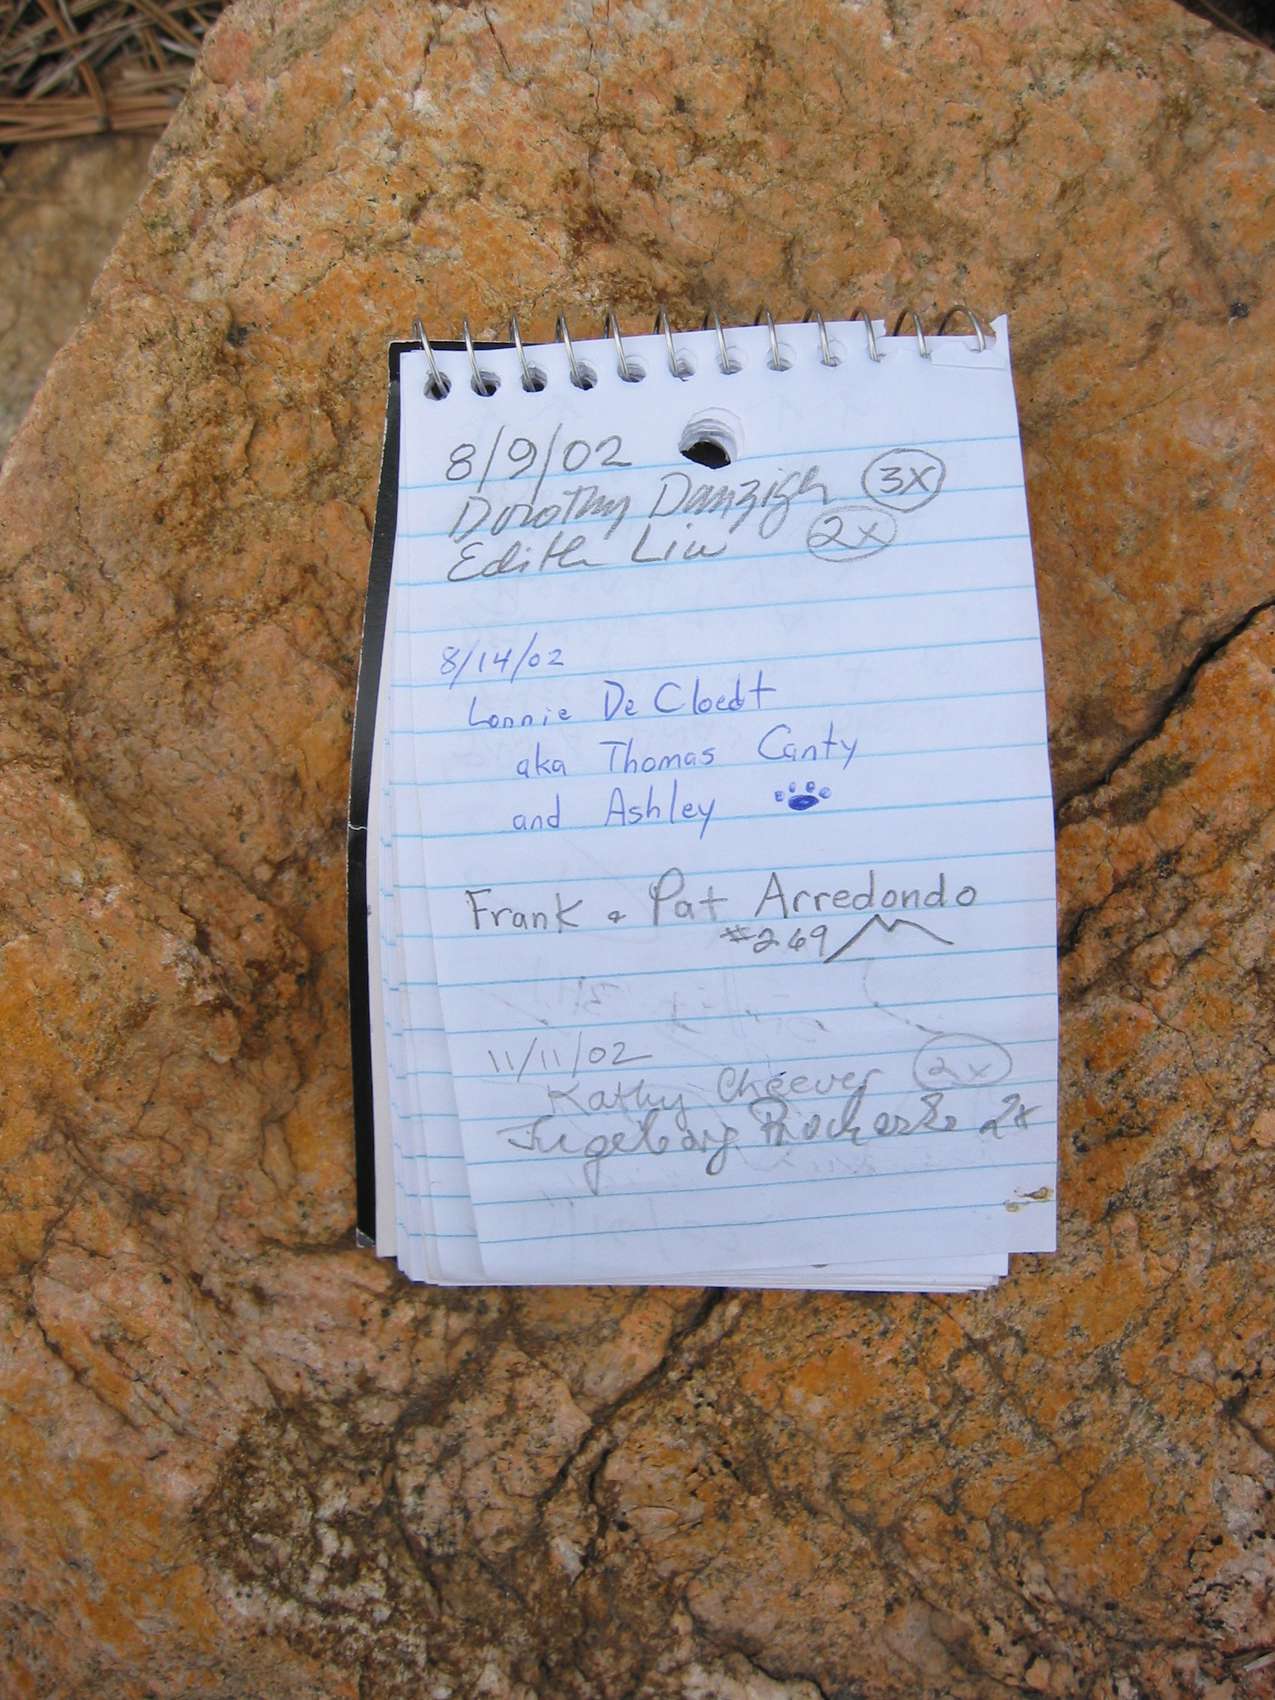 8/9/02
Dorothy Danzigh 3x
Edith Liu 2x
8/14/02
Lonnie De Cloedt
aka Thomas Canty
and Ashley
Frank & Pat Arredondo
#269
11/11/02
Kathy Cheever 2x
Ingeborg 2x